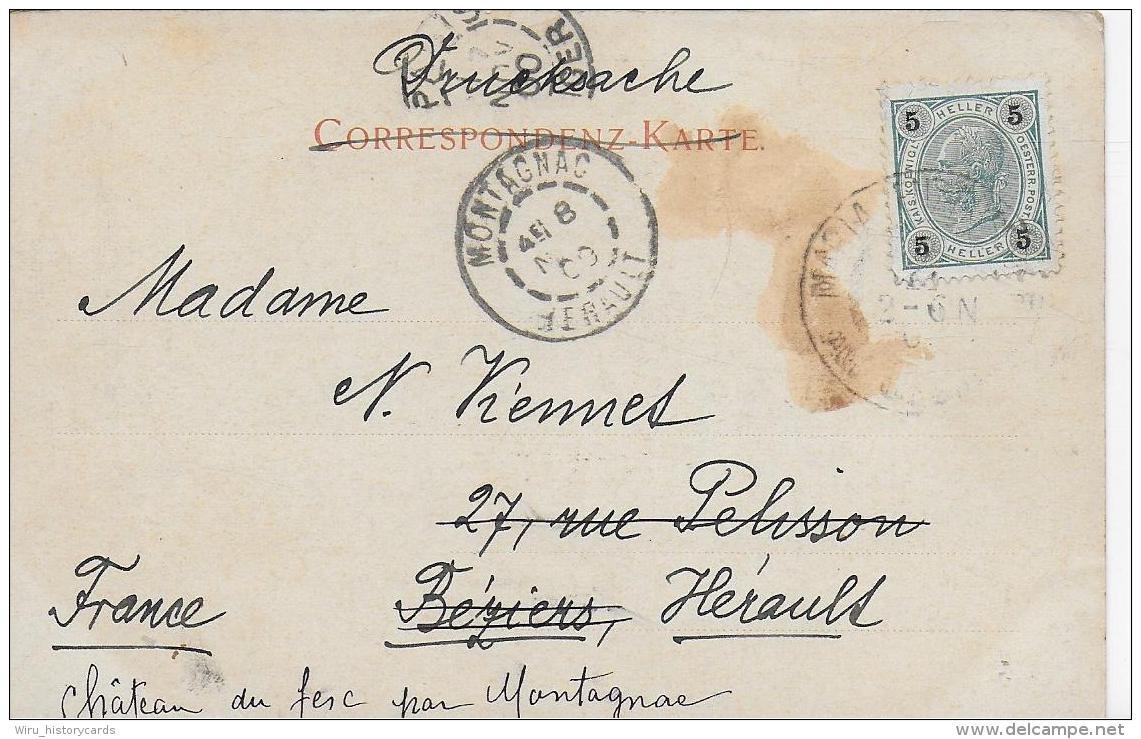 Drucksache
CORRESPONDENZ-KARTE.
MONTAGNAC
8
HERAULT
5 HELLER 5
KAIS. KOENIGL. OESTERR. POST
5 HELLER 5
2-6 N
Madame
N. Viennet
27, rue Pelisson
France Béziers, Hérault
Château du fesc par Montagnac
Wiru_historycards
delcampe.net